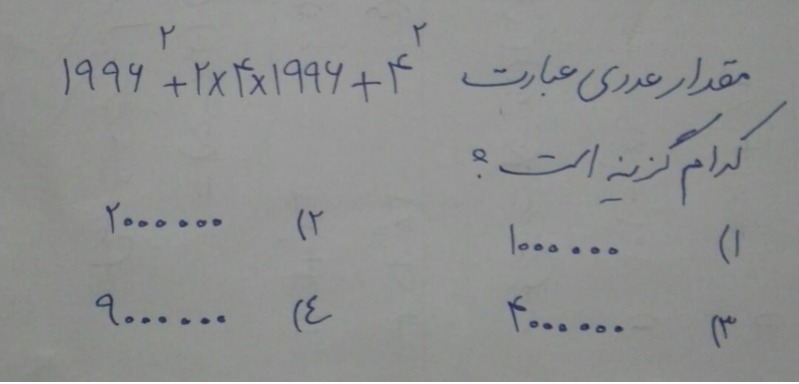 مقدار عددی عبارت ۱۹۹۶^۲ + ۲×۴×۱۹۹۶ + ۴^۲
کدام گزینه است ؟
۱) ۱۰۰۰۰۰۰ ۲) ۲۰۰۰۰۰۰
۳) ۴۰۰۰۰۰۰ ٤) ۹۰۰۰۰۰۰